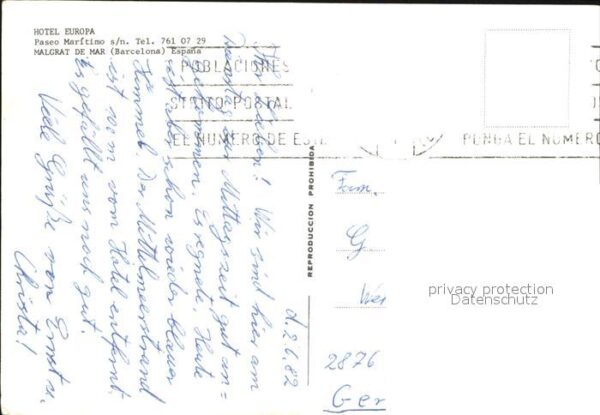 HOTEL EUROPA
Paseo Marítimo s/n. Tel. 761 07 29
MALGRAT DE MAR (Barcelona) España
POBLACIONES
DISTRITO POSTAL
EL NUMERO DE ESTE
PONGA EL NUMERO
REPRODUCCION PROHIBIDA
d. 2.6.82
Ihr Lieben! Wir sind hier am
zur Mittagszeit gut an-
gekommen. Es regnete. Heute
ist aber schon wieder blauer
Himmel. Der Mittelmeerstrand
ist nur vom Hotel entfernt.
Es gefällt uns noch gut.
Viele Grüße von Ernst u.
Christa!
Fam.
G
Wei
2876
Ger
privacy protection
Datenschutz